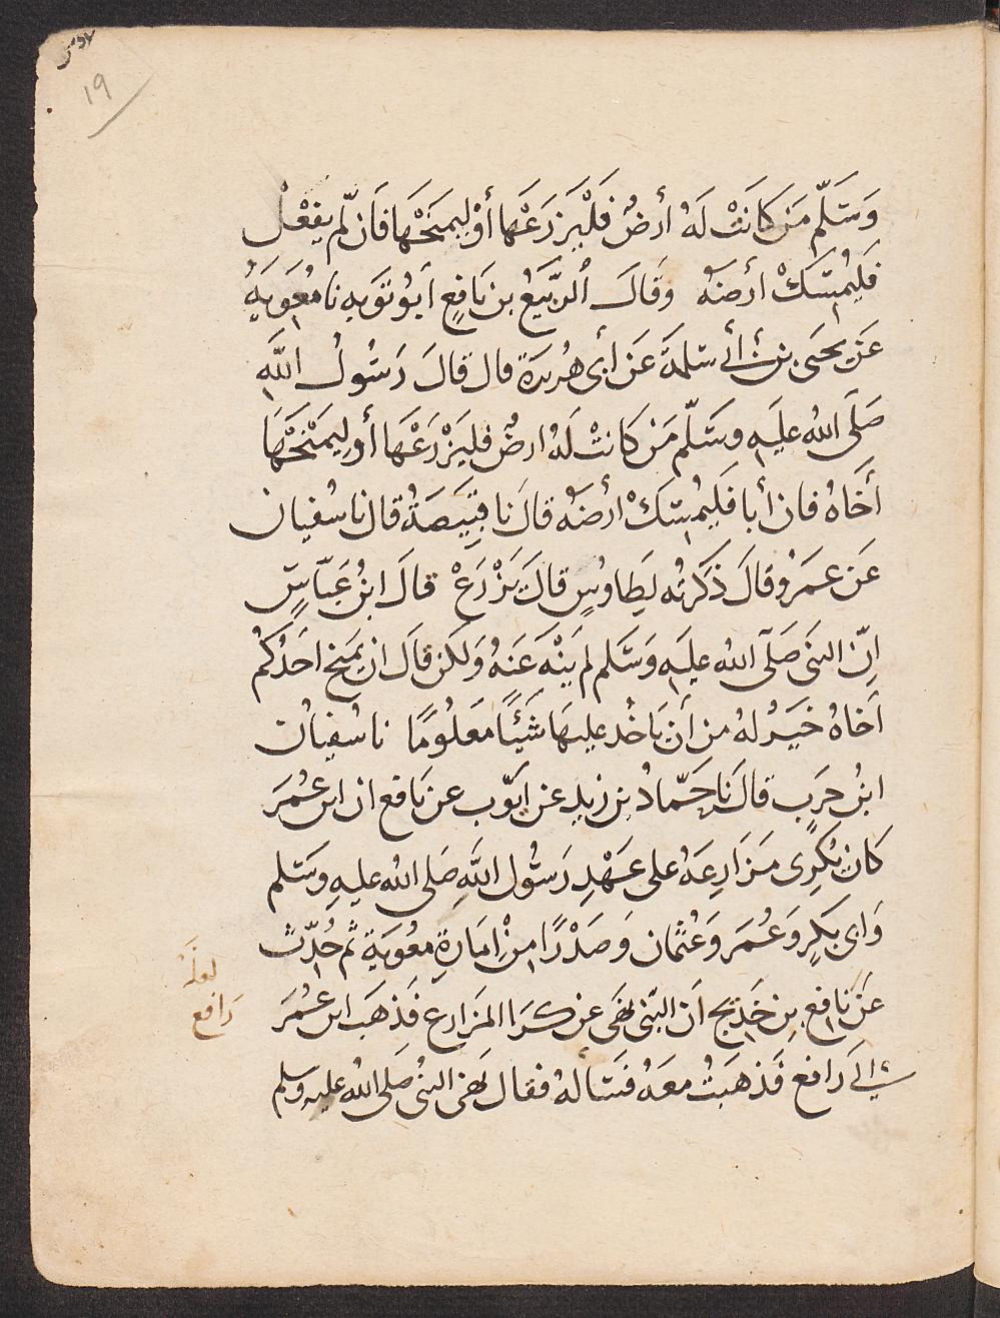 ١٩
وَسَلَّم مَن كانَتْ لَهُ أرضٌ فَلْيَزرَعْها أوْ لِيمنَحْهَا فَان لّم يفعْل
فَليُمْسِكْ أرضَهُ وَقَالَ الرَّبيَعُ بن نَافِعٍ أبوُ تَوبه نا مُعوِيَةُ
عَن يحيَى بن أبي سَلمَة عَن أبى هُريرة قال قالَ رَسُولُ اللَّهِ
صَلَّى اللهُ علَيهِ وسَلّم مَن كَانتْ لَهُ ارضٌ فليَزْرَعْهَا أو لِيَمْنَحْهَا
أخَاهُ فان أبا فَليُمْسِكْ أرضَهُ قالَ نا قبَيصَةُ قال نا سُفيان
عَن عمَرو قالَ ذَكَرتُه لِطَاوُسٍ قالَ يَزْرَعْ قالَ ابنُ عَبّاسٍ
انّ النبَى صَلّى اللهُ عليَهِ وَسَلم لم يَنْهَ عَنهُ وَلكن قَالَ ان يَمنح احَدُكُم
أخاهُ خيَرٌ لهُ من أن يَاخُذ عليهَا شَيْئًا مَعلُومًا نا سُفيانُ
ابنُ حَرب قالَ نا حَمّادُ بن زيدٍ عن ايّوب عن نَافع ان ابن عُمَرَ
كَان يُكرِى مَزَارِعَهُ على عَهْدِ رَسُول اللَّهِ صَلى اللهُ عليهِ وسَلم
وَابى بَكرٍ وَعُمَرَ وَعُثمان وَصَدْرًا مِنْ امَارةِ معُوية ثم حُدّث
عَن نافع بن خَدِيج أن النبّى نهَى عن كرا المَزارع فَذهَبَ ابن عُمَرَ
لعلَّهُ
رَافع
إلى رَافع فَذهَبتُ معَهُ فسَالهُ فقال نَهَى النبىُّ صَلى اللهُ عليهِ وسلم